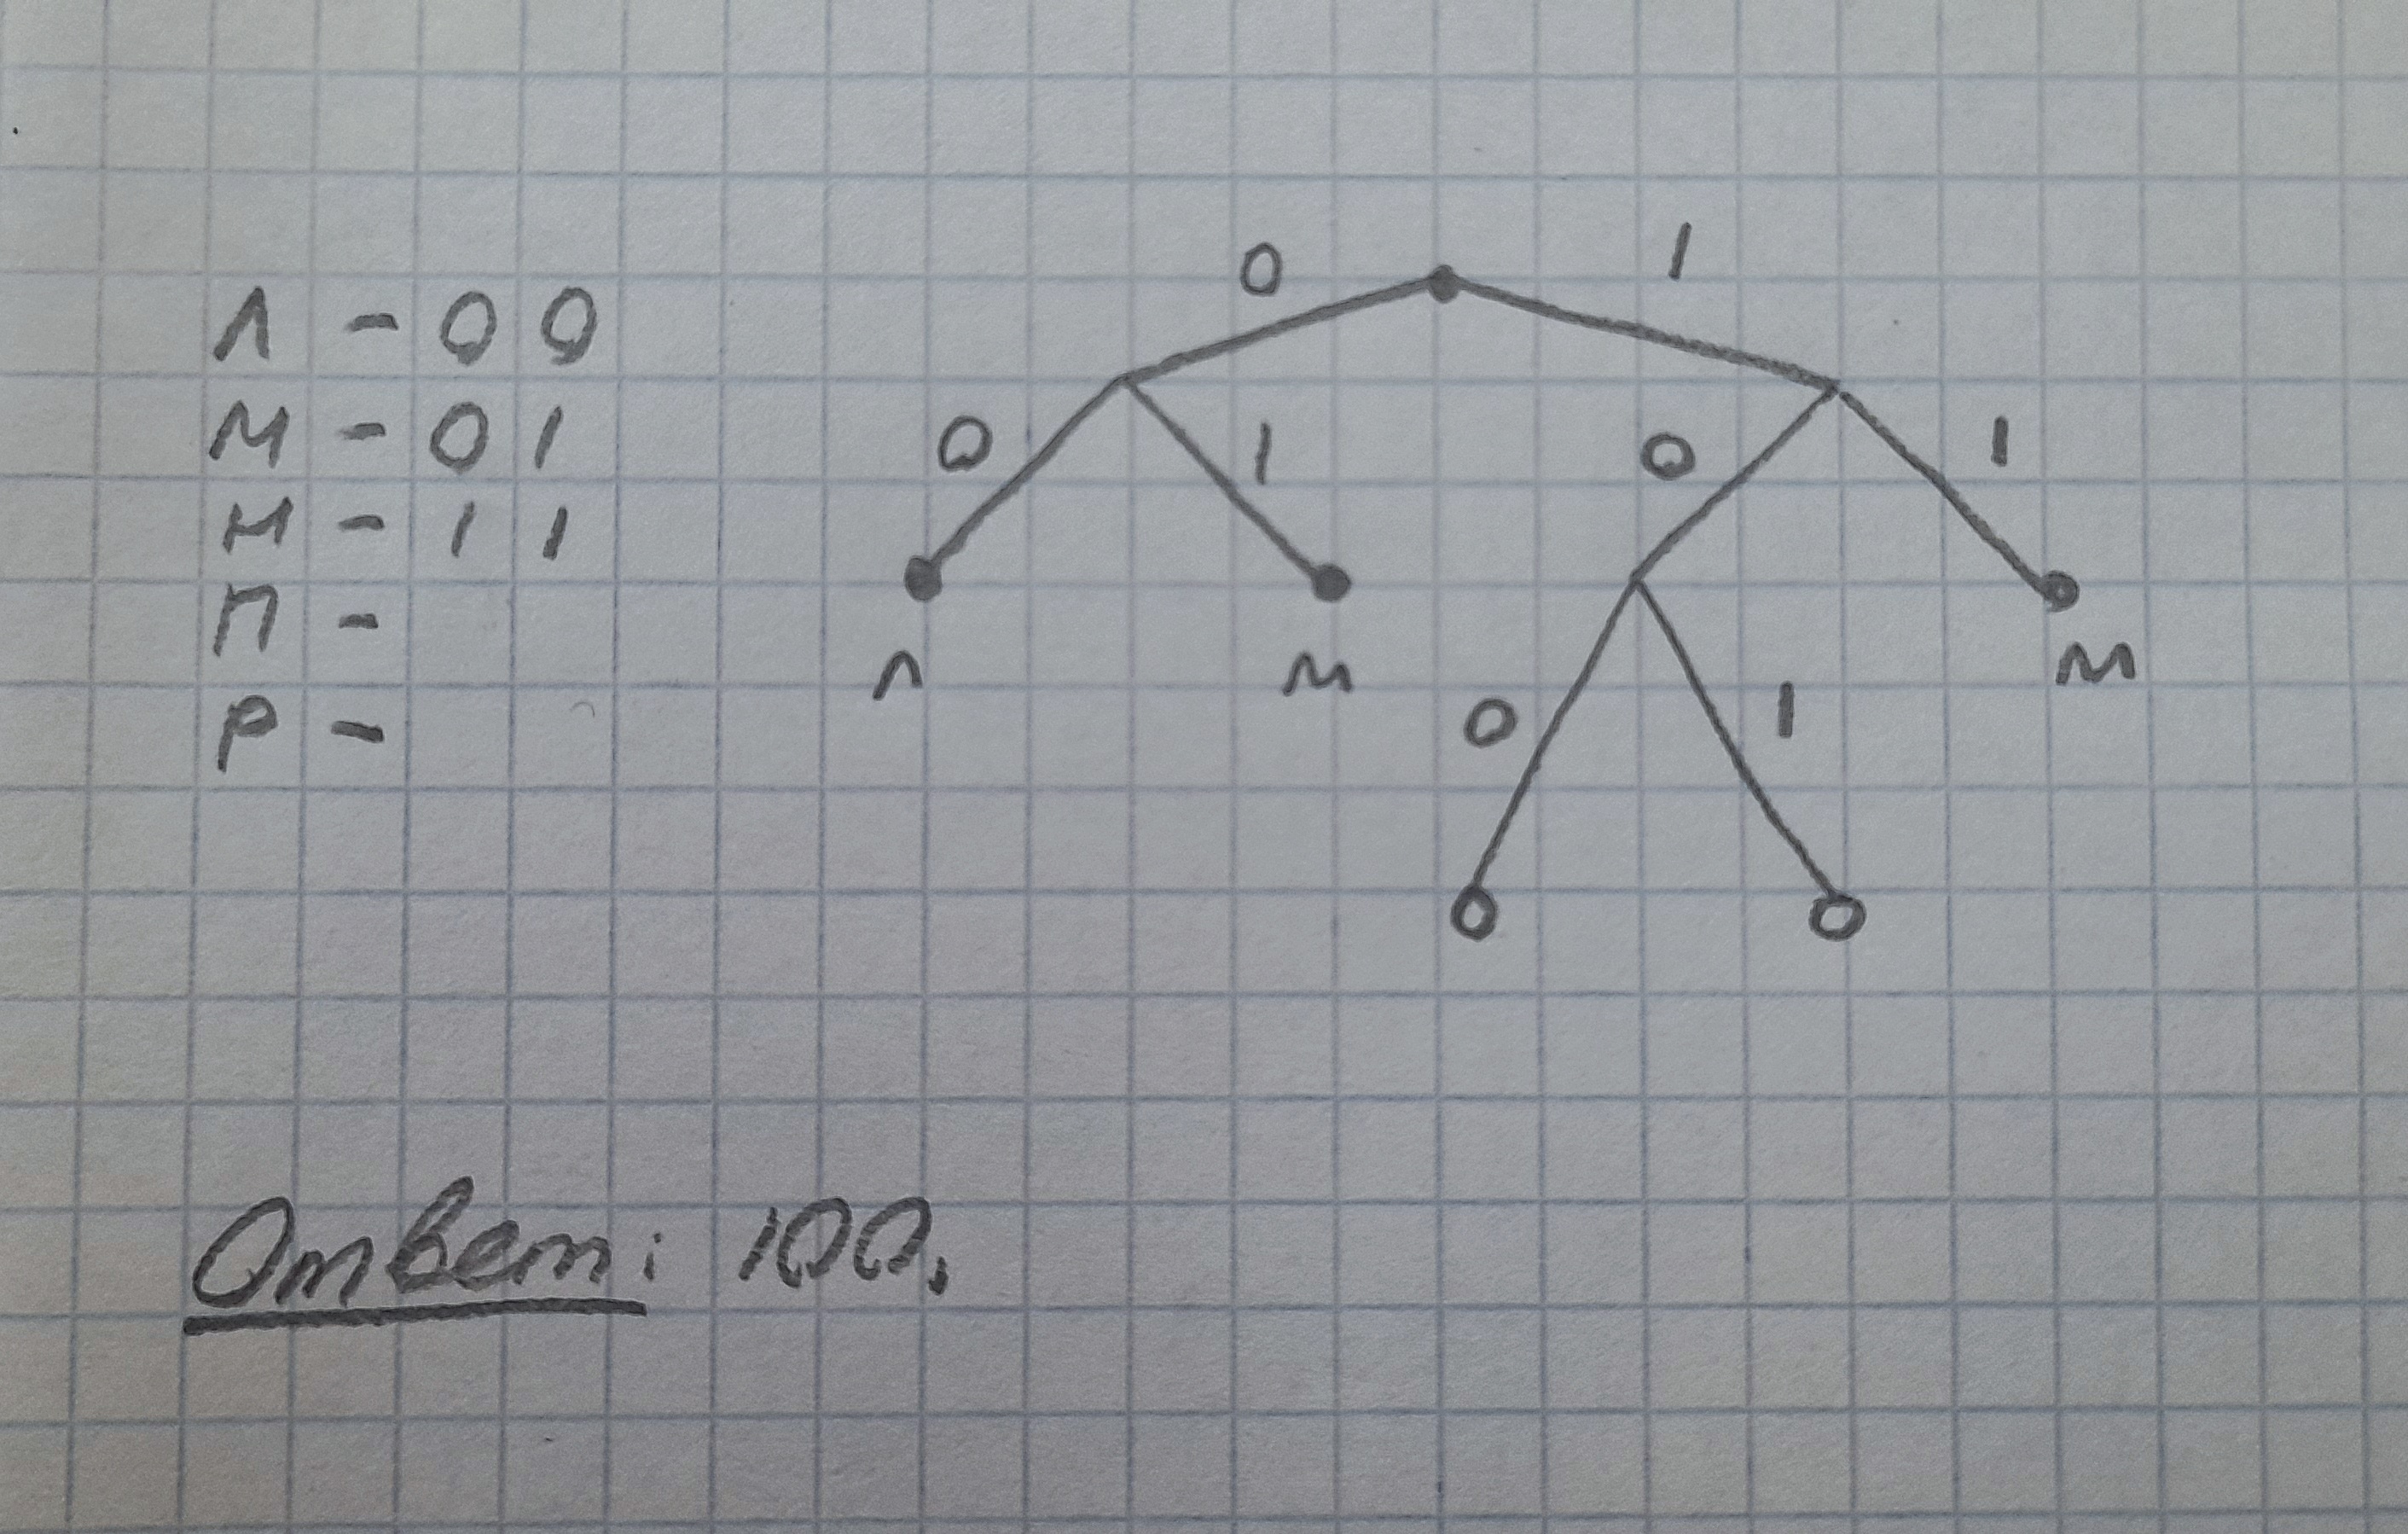 Л - 00
М - 01
Н - 11
П -
Р -
0 1
0 1 0 1
Л М М
0 1
Ответ: 100.